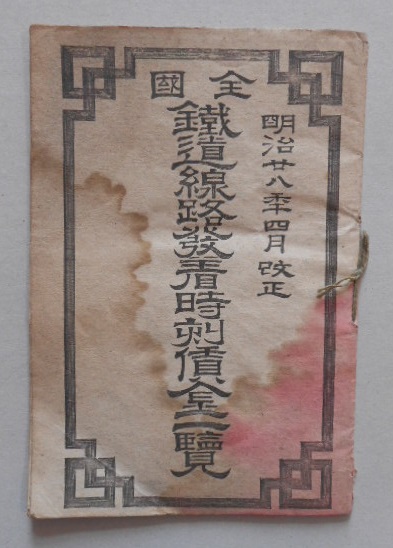 明治廿八年四月改正
全國
鐵道線路發着時刻賃金一覽